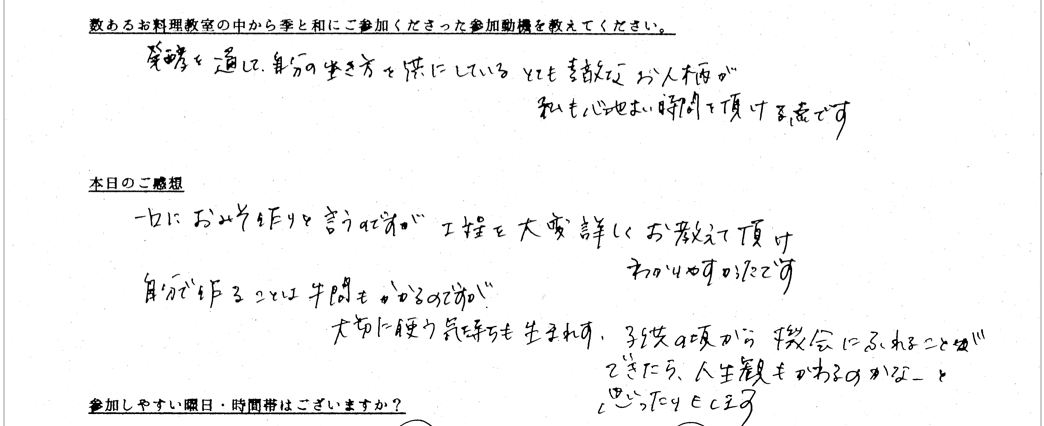 数あるお料理教室の中から季と和にご参加くださった参加動機を教えてください。
発酵を通して、自分の生き方を供にしているとても素敵なお人柄が
私も心地よい時間を頂ける点です
本日のご感想
一口におみそ作りと言うのですが工程を大変詳しくお教えて頂け
わかりやすかったです
自分で作ることは手間もかかるのですが
大切に使う気持ちも生まれます、子供の頃から機会にふれることが
できたら、人生観もかわるのかなーと
思ったりもします
参加しやすい曜日・時間帯はございますか？